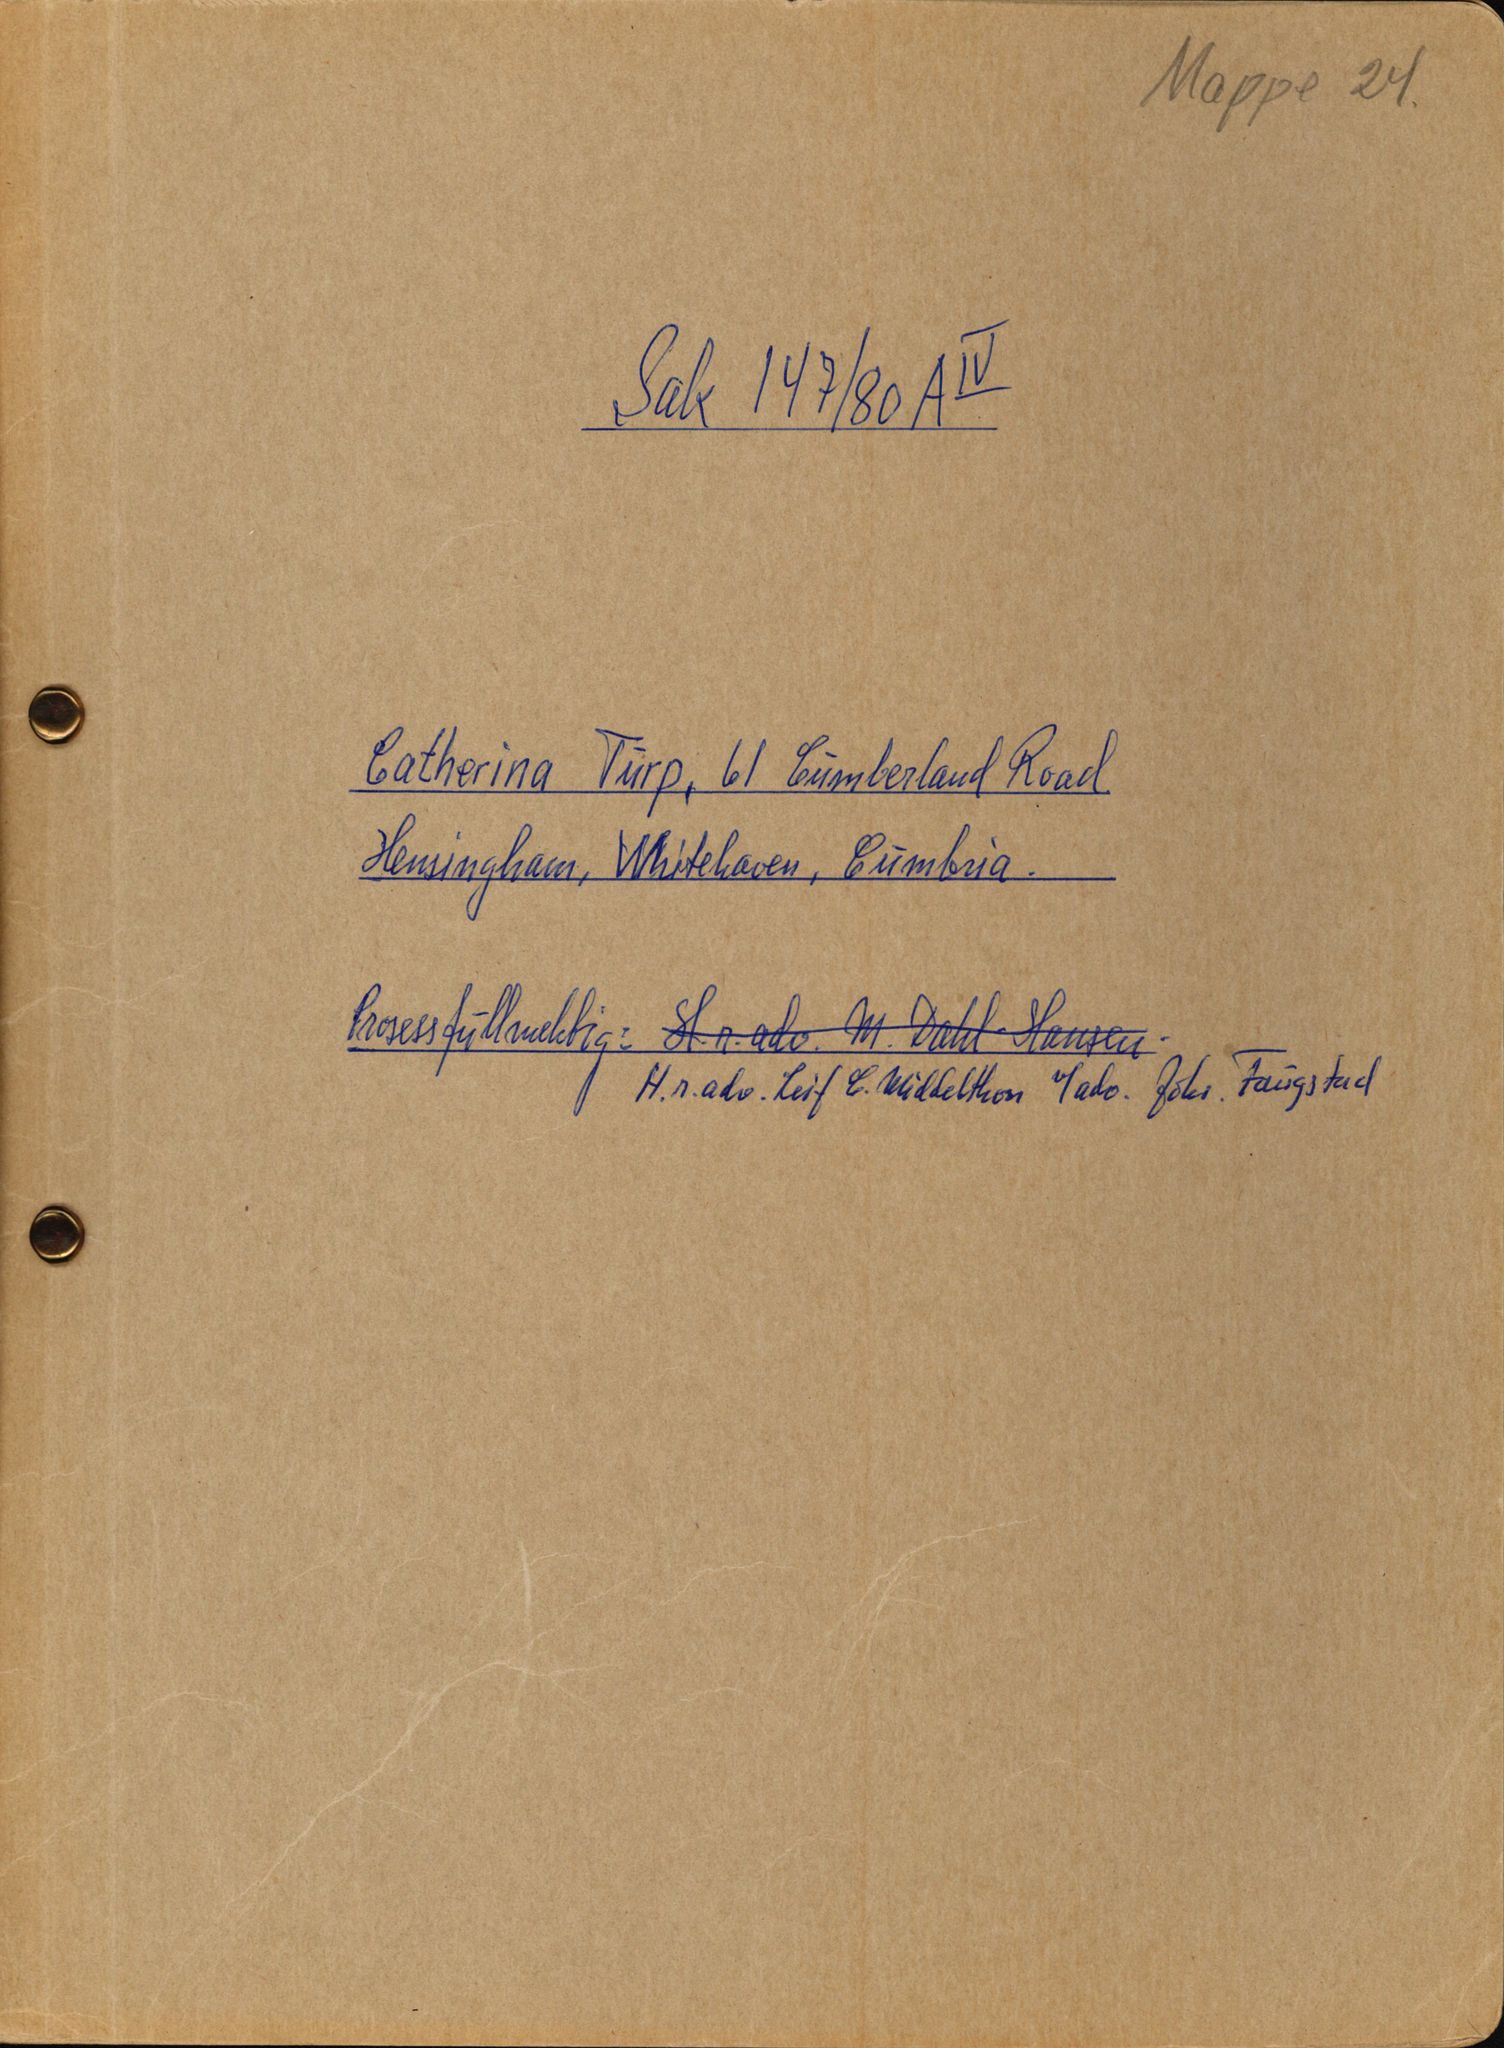 Mappe 24.
Sak 147/80 A IV
Catherina Turp, 61 Cumberland Road
Hensingham, Whitehaven, Cumbria.
Prosessfullmektig: H.r.adv. M. Dahl-Hansen.
H.r.adv. Leif C. Middelthon v/adv. Johs. Faugstad